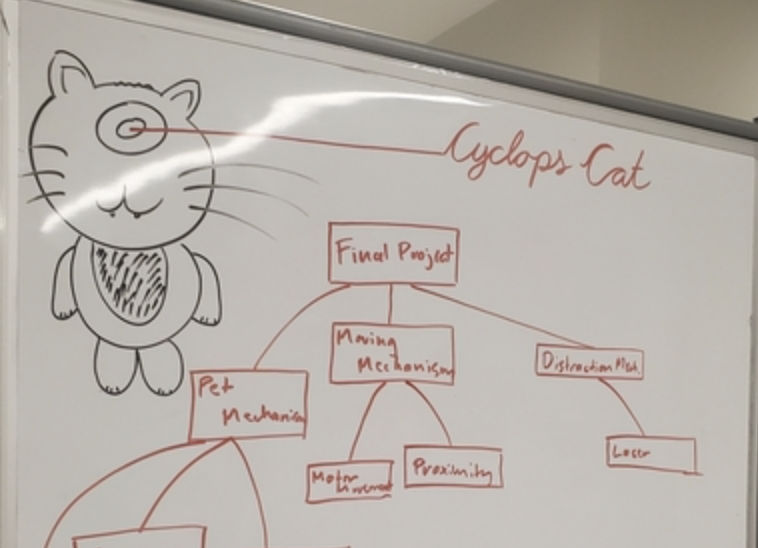 Cyclops Cat
Final Project
Moving
Mechanism
Distraction Mech.
Pet
Mechanism
Motor
Movement
Proximity
Laser